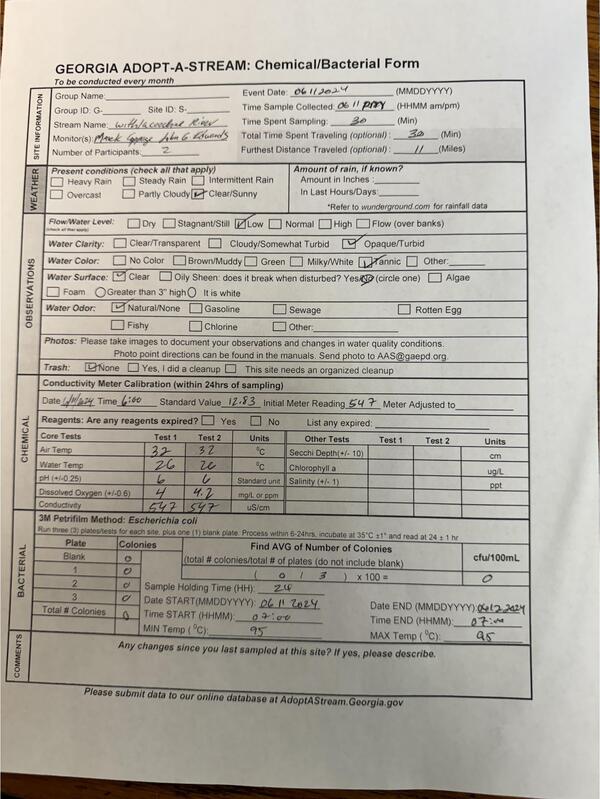 GEORGIA ADOPT-A-STREAM: Chemical/Bacterial Form
To be conducted every month
SITE INFORMATION
Group Name: Event Date: 06112024 (MMDDYYYY)
Group ID: G- Site ID: S- Time Sample Collected: 0611 (HHMM am/pm)
Stream Name: Withlacoochee River Time Spent Sampling: 30 (Min)
Monitor(s): Mark John G Edwards Total Time Spent Traveling (optional): 30 (Min)
Number of Participants: 2 Furthest Distance Traveled (optional): 11 (Miles)
WEATHER
Present conditions (check all that apply) Amount of rain, if known?
Heavy Rain Steady Rain Intermittent Rain Amount in Inches:
Overcast Partly Cloudy Clear/Sunny In Last Hours/Days:
*Refer to wunderground.com for rainfall data
OBSERVATIONS
Flow/Water Level: Dry Stagnant/Still Low Normal High Flow (over banks)
(check all that apply)
Water Clarity: Clear/Transparent Cloudy/Somewhat Turbid Opaque/Turbid
Water Color: No Color Brown/Muddy Green Milky/White Tannic Other:
Water Surface: Clear Oily Sheen: does it break when disturbed? Yes/No (circle one) Algae
Foam Greater than 3" high It is white
Water Odor: Natural/None Gasoline Sewage Rotten Egg
Fishy Chlorine Other:
Photos: Please take images to document your observations and changes in water quality conditions.
Photo point directions can be found in the manuals. Send photo to AAS@gaepd.org.
Trash: None Yes, I did a cleanup This site needs an organized cleanup
CHEMICAL
Conductivity Meter Calibration (within 24hrs of sampling)
Date 6/11/2024 Time 6:00 Standard Value 12.83 Initial Meter Reading 547 Meter Adjusted to
Reagents: Are any reagents expired? Yes No List any expired:
Core Tests Test 1 Test 2 Units Other Tests Test 1 Test 2 Units
Air Temp 32 32 °C Secchi Depth(+/- 10) cm
Water Temp 26 26 °C Chlorophyll a ug/L
pH (+/-0.25) 6 6 Standard unit Salinity (+/- 1) ppt
Dissolved Oxygen (+/-0.6) 4 4.2 mg/L or ppm
Conductivity 547 547 uS/cm
BACTERIAL
3M Petrifilm Method: Escherichia coli
Run three (3) plates/tests for each site, plus one (1) blank plate. Process within 6-24hrs, incubate at 35°C ±1° and read at 24 ± 1 hr
Plate Colonies Find AVG of Number of Colonies cfu/100mL
Blank 0 (total # colonies/total # of plates (do not include blank)
1 0 ( 0 / 3 ) x 100 = 0
2 0 Sample Holding Time (HH): 24
3 0 Date START(MMDDYYYY): 06 11 2024 Date END (MMDDYYYY): 06122024
Total # Colonies 0 Time START (HHMM): 07:00 Time END (HHMM): 07:00
MIN Temp (°C): 95 MAX Temp (°C): 95
COMMENTS
Any changes since you last sampled at this site? If yes, please describe.
Please submit data to our online database at AdoptAStream.Georgia.gov